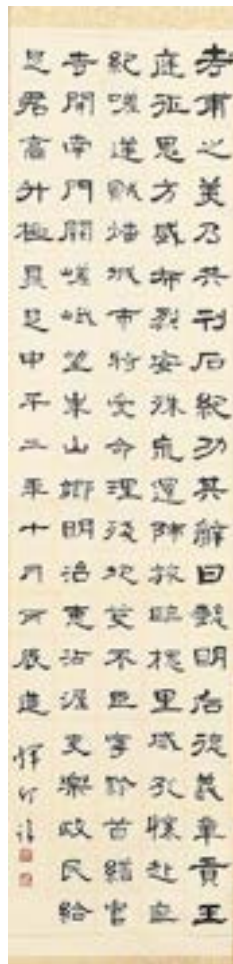 考甫之美乃共刊石紀功其辭曰懿明后德義章貢王
庭征鬼方威布烈安殊荒還師旅臨槐里感孔懷赴喪
紀嗟逆賊燔城市特受命理殘圮芟不臣寧黔首繕官
寺開南門闕嵯峨望華山鄉明治惠沾渥吏樂政民給
足君高升極鼎足中平二年十月丙辰造